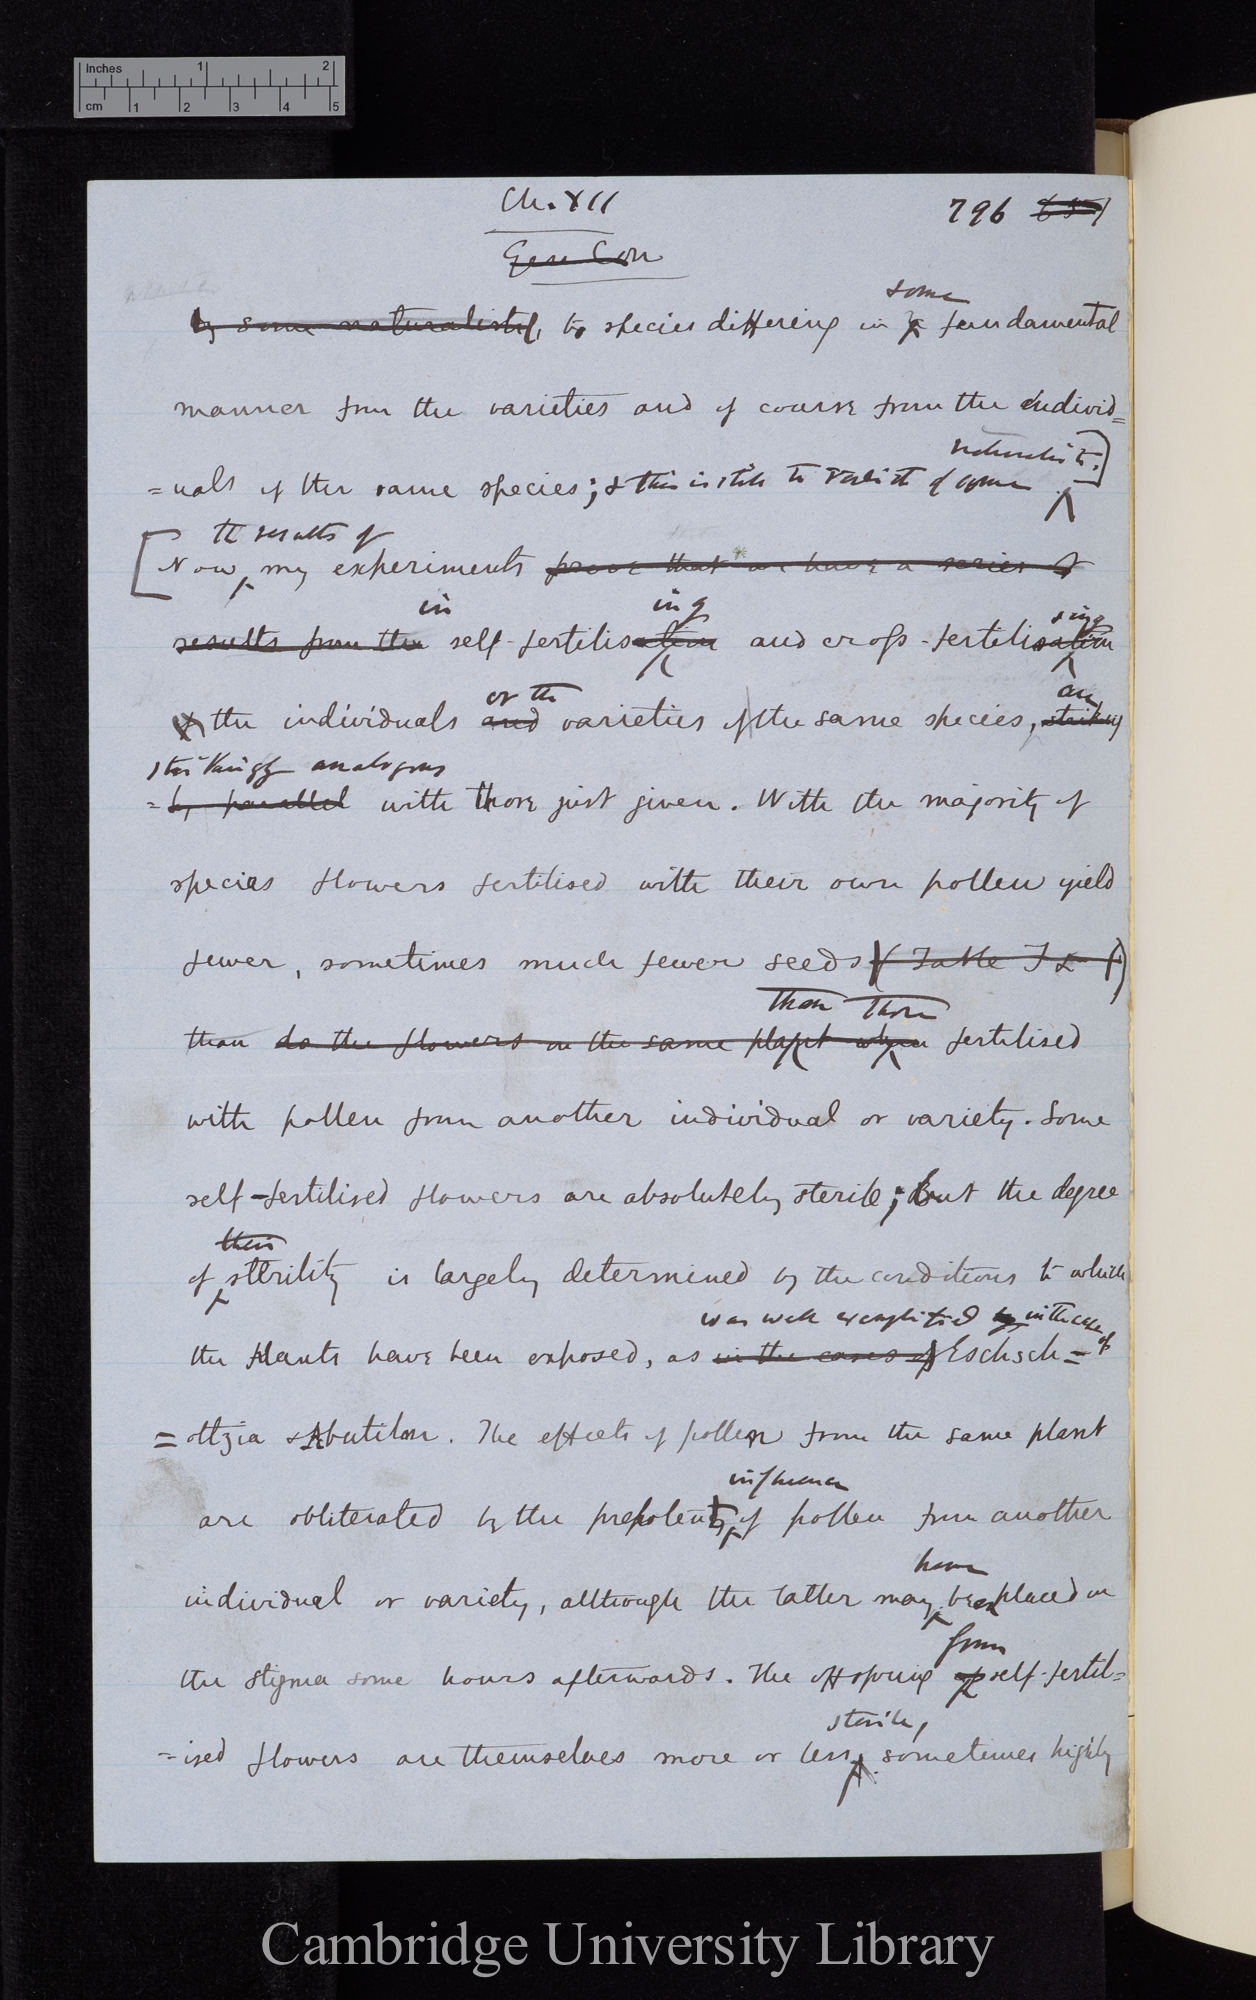 Inches 1 2
cm 1 2 3 4 5
Ch. XII
796
Gen Con
some
by some naturalists, to species differing in a fundamental
manner from the varieties and of course from the individ=
naturalists.]
=uals of the same species; & this is still the belief of some
the results of
[Now my experiments prove that we have a series of
in ing sing
results from the self-fertilisation and cross-fertilisation
or the are
of the individuals and varieties of the same species, striking
strikingly analogous
=ly parallel with those just given. With the majority of
species flowers fertilised with their own pollen yield
fewer, sometimes much fewer seeds (Table I & )
than those
than do the flowers on the same plant when fertilised
with pollen from another individual or variety. Some
self-fertilised flowers are absolutely sterile; but the degree
their
of sterility is largely determined by the conditions to which
was well exemplified by in the case of
the plants have been exposed, as in the cases of Eschsch=
=oltzia & Abutilon. The effects of pollen from the same plant
influence
are obliterated by the prepotent of pollen from another
have
individual or variety, although the latter may been placed on
from
the stigma some hours afterwards. The offspring of self-fertil=
sterile,
=ised flowers are themselves more or less, sometimes highly
Cambridge University Library